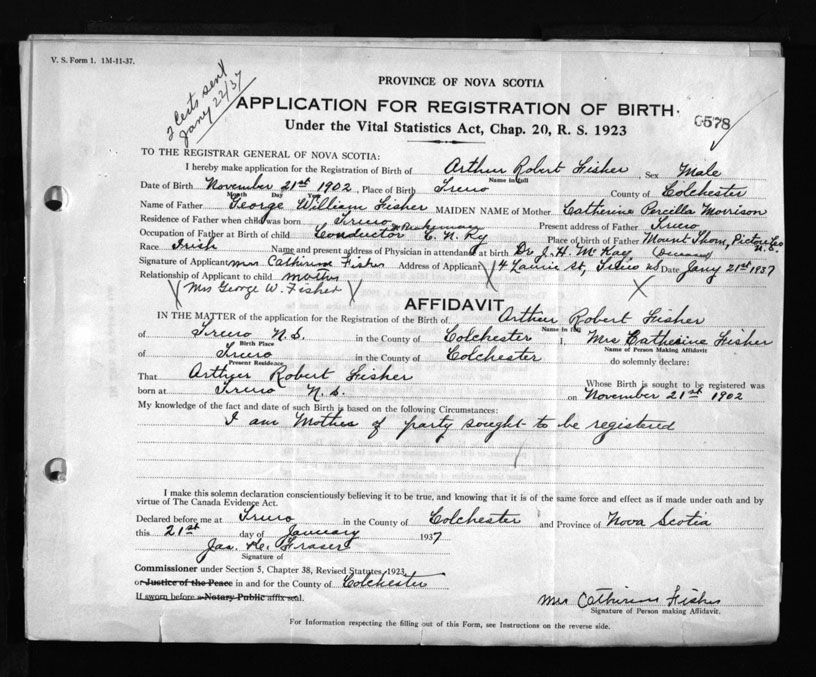 V. S. Form 1. 1M-11-37.
2 Certs sent
Jany 22/37
PROVINCE OF NOVA SCOTIA
APPLICATION FOR REGISTRATION OF BIRTH
578
Under the Vital Statistics Act, Chap. 20, R. S. 1923
TO THE REGISTRAR GENERAL OF NOVA SCOTIA:
I hereby make application for the Registration of Birth of Arthur Robert Fisher, Sex Male
Name in full
Date of Birth November 21st 1902, Place of Birth Truro County of Colchester
Month Day Year
Name of Father George William Fisher MAIDEN NAME of Mother Catherine Percilla Morrison
Residence of Father when child was born Truro Present address of Father Truro
Occupation of Father at Birth of child Conductor C. N. Ry Place of birth of Father Mount Thom, Pictou Co
N. S.
Race Irish Name and present address of Physician in attendance at birth Dr J. H. McKay,
Signature of Applicant Mrs Catherine Fisher Address of Applicant 4 Laurie St, Truro NS Date Jany 21st 1937
Relationship of Applicant to child mother
Mrs George W. Fisher
AFFIDAVIT
IN THE MATTER of the application for the Registration of the Birth of Arthur Robert Fisher
Name in full
of Truro N.S. in the County of Colchester I, Mrs Catherine Fisher
Birth Place Name of Person Making Affidavit
of Truro in the County of Colchester do solemnly declare:
Present Residence
That Arthur Robert Fisher Whose Birth is sought to be registered was
born at Truro N.S. on November 21st 1902
My knowledge of the fact and date of such Birth is based on the following Circumstances:
I am Mother of party sought to be registered
I make this solemn declaration conscientiously believing it to be true, and knowing that it is of the same force and effect as if made under oath and by
virtue of The Canada Evidence Act.
Declared before me at Truro in the County of Colchester and Province of Nova Scotia
this 21st day of January 1937
Jas. Fraser
Signature of
Commissioner under Section 5, Chapter 38, Revised Statutes, 1923,
or Justice of the Peace in and for the County of Colchester
If sworn before a Notary Public affix seal.
Mrs Catherine Fisher
Signature of Person making Affidavit.
For Information respecting the filling out of this Form, see Instructions on the reverse side.